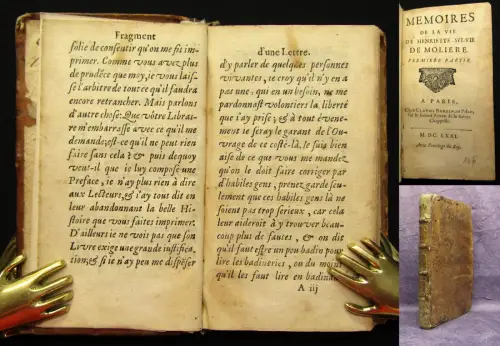 Fragment
folie de consentir qu'on me fit im-
primer. Comme vous avez plus
de prudẽce que moy, je vous lais-
se l'arbitre de toutce qu'il faudra
encore retrancher. Mais parlons
d'autre chose: Que vôtre Librai-
re m'embarrasse avec ce qu'il me
demande, est-ce qu'il ne peut rien
faire sans cela? & dequoy
veut-il que je luy compose une
Preface, je n'ay plus rien à dire
aux Lecteurs, & j'ay tout dit en
leur abandonnant la belle Hi-
stoire que vous faites imprimer.
D'ailleurs je ne vois pas que son
Livre exige une grande justifica-
tion, & si je n'ay peu me dispẽser
d'une Lettre.
d'y parler de quelques personnes
vivantes, je croy qu'il n'y en a
pas une, qui en un besoin, ne me
pardonnast volontiers la liberté
que j'ay prise, & à tout évene-
ment je seray le garant de l'Ou-
vrage de ce costé-là. je suis bien
aise de ce que vous me mandez
qu'on le doit faire corriger par
d'habiles gens, prenez garde seu-
lement que ces habiles gens là ne
soient pas trop serieux, car cela
leur aideroit à y trouver beau-
coup plus de fautes, & on dit
qu'il faut estre un peu badin pour
lire les badineries, ou du moins
qu'il les faut lire en badinant
A iij
MEMOIRES
DE LA VIE
DE HENRIETE-SYLVIE
DE MOLIERE.
PREMIERE PARTIE.
A PARIS,
Chez CLAUDE BARBIN au Palais,
sur le second Perron de la Sainte
Chappelle.
M. DC. LXXI.
Avec Privilege du Roy.